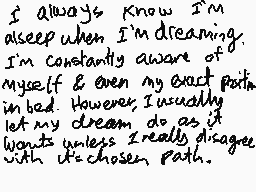 I always know I'm
alseep when I'm dreaming.
I'm constantly aware of
myself & even my exact positin
in bed. However, I usually
let my dream do as it
wants unless I really disagree
with it's chosen path.